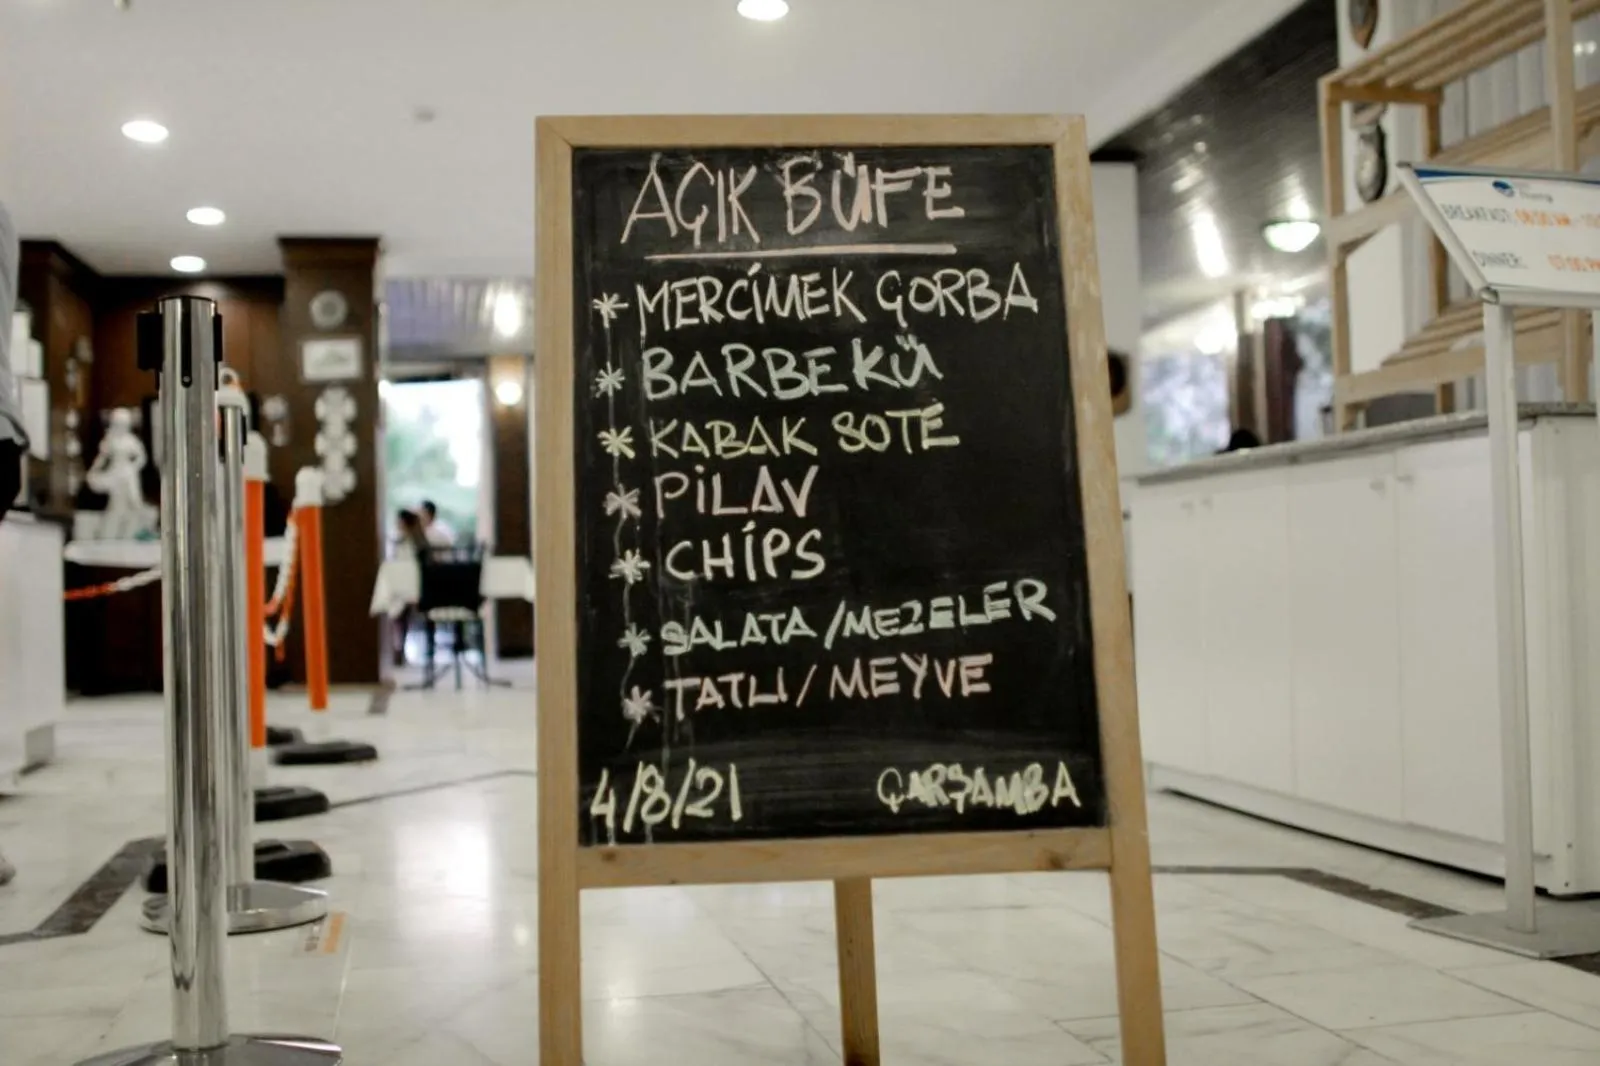 AÇIK BÜFE
* MERCİMEK ÇORBA
* BARBEKÜ
* KABAK SOTE
* PİLAV
* CHİPS
* SALATA / MEZELER
* TATLI / MEYVE
4/8/21 ÇARŞAMBA
BREAKFAST: 08:00 AM -
DINNER: 07:00 PM